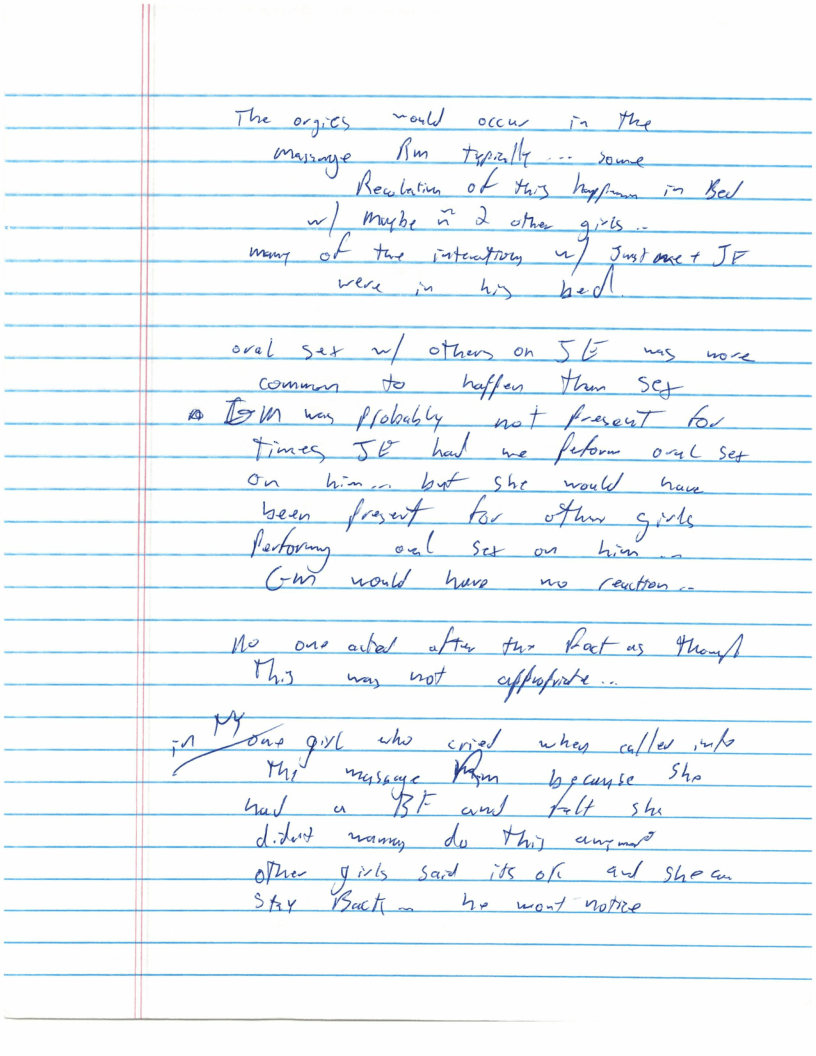 The orgies would occur in the
massage Rm typically ... some
Recolation of this happen in Bed
w/ maybe 2 other girls ..
many of the interactions w/ Just me + JE
were in his bed.
oral sex w/ others on JE was more
common to happen than sex
GM was probably not present for
times JE had me peform oral sex
on him ... but she would have
been present for other girls
performing oral sex on him ...
GM would have no reaction ..
No one acted after the fact as though
This was not appropriate ...
in NY one girl who cried when called into
the massage Rm because she
had a BF and felt she
didnt do this anymore
other girls said its ok and she can
stay Back .. he wont notice